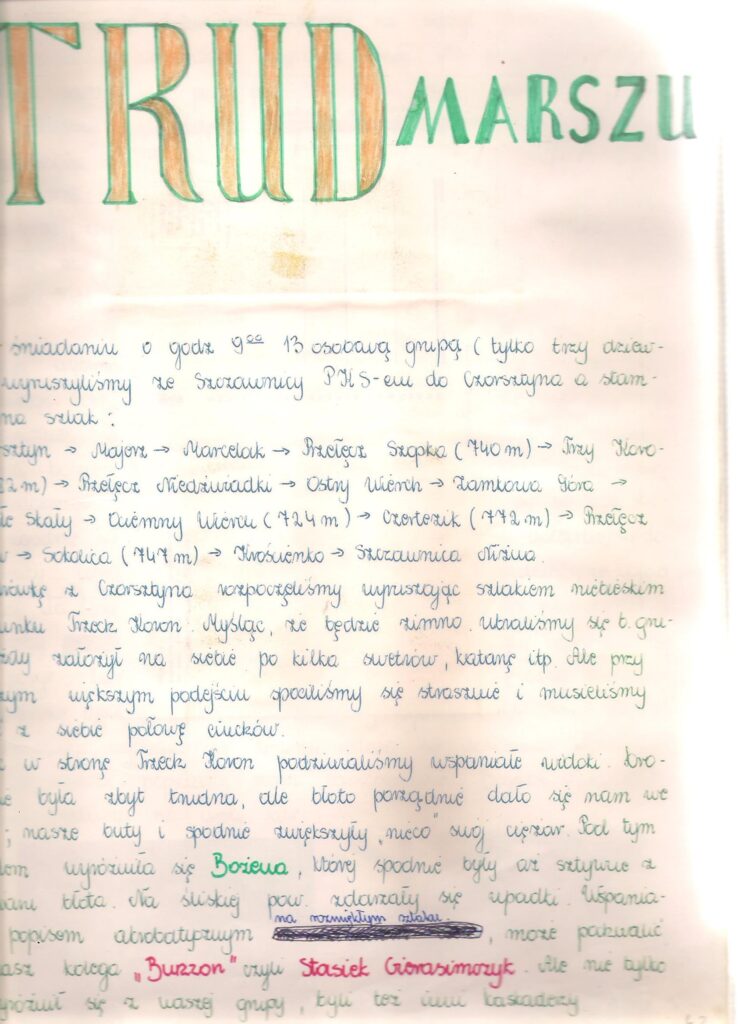 TRUD MARSZU
śniadaniu o godz 9⁰⁰ 13 osobową grupą ( tylko trzy dziew-
wyruszyliśmy ze Szczawnicy PKS-em do Czorsztyna a stam-
na szlak :
sztyn → Majerz → Marcelak → Przełęcz Szopka ( 740 m ) → Trzy Koro-
82 m) → Przełęcz Niedźwiadki → Ostry Wierch → Zamkowa Góra →
łe Skały → Ociemny Wierch ( 724 m ) → Czertezik ( 772 m ) → Przełęcz
→ Sokolica ( 747 m ) → Krościenko → Szczawnica Niżna.
rówkę z Czorsztyna rozpoczęliśmy wyruszając szlakiem niebieskim
unku Trzech Koron. Myśląc, że będzie zimno. ubraliśmy się b. gru-
żdy założył na siebie po kilka swetrów, katanę itp. Ale przy
zym większym podejściu spociliśmy się strasznie i musieliśmy
ć z siebie połowę ciuchów.
c w stronę Trzech Koron podziwialiśmy wspaniałe widoki. Dro-
ie była zbyt trudna, ale błoto porządnie dało się nam we
; nasze buty i spodnie zwiększyły „nieco" swój ciężar. Pod tym
dem wyróżniła się Bożena, której spodnie były aż sztywne z
błota. Na śliskiej pow. zdarzały się upadki. Wspania-
na rozmiękłym szlaku.
popisem akrobatycznym , może pochwalić
asz kolega „Buzzon" czyli Stasiek Gierasimczyk. Ale nie tylko
yróżnił się z naszej grupy, byli też inni kaskaderzy